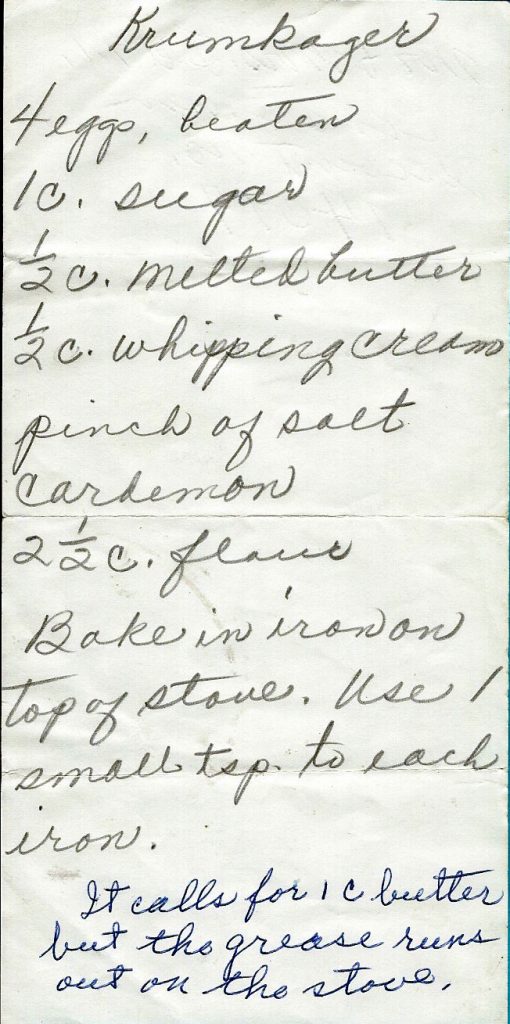 Krumkager
4 eggs, beaten
1 c. sugar
1/2 c. melted butter
1/2 c. whipping cream
pinch of salt
cardemon
2 1/2 c. flour
Bake in iron on
top of stove. Use 1
small tsp. to each
iron.
It calls for 1 c butter
but the grease runs
out on the stove.